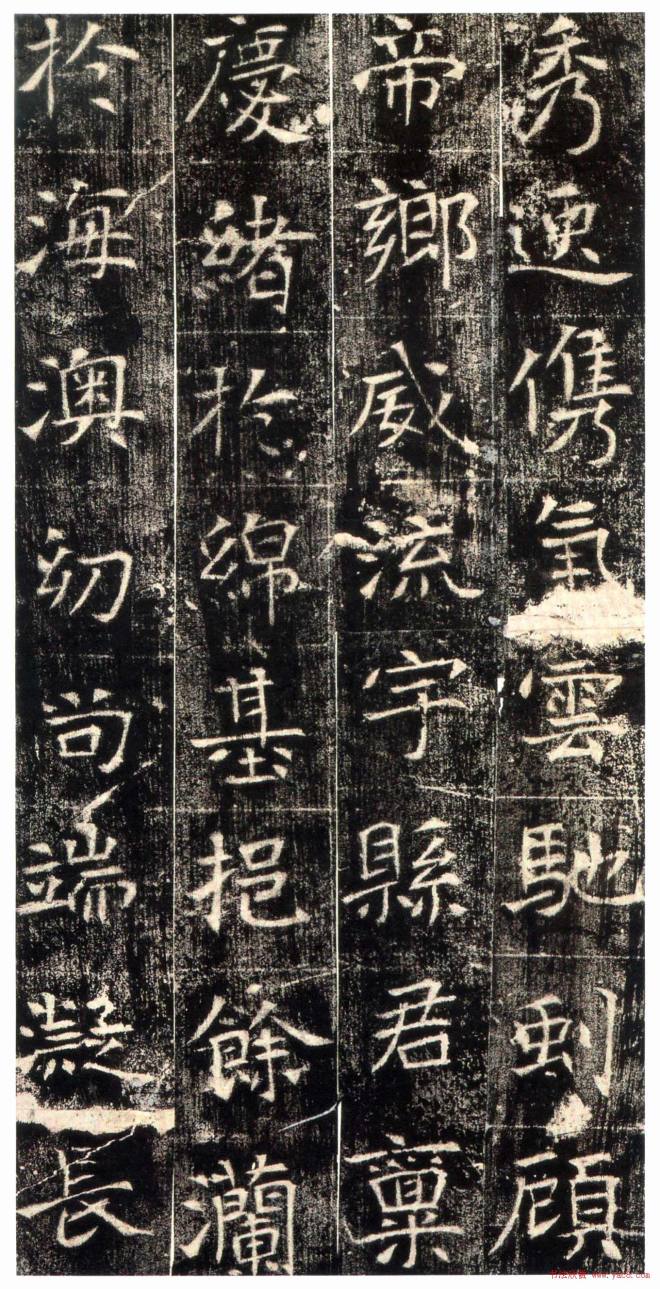 秀儁氣雲馳顧
帝鄉威流宇縣君稟
慶緒於綿基挹餘瀾
於海澳幼尚端凝長
书法欣赏 www.yac8.com